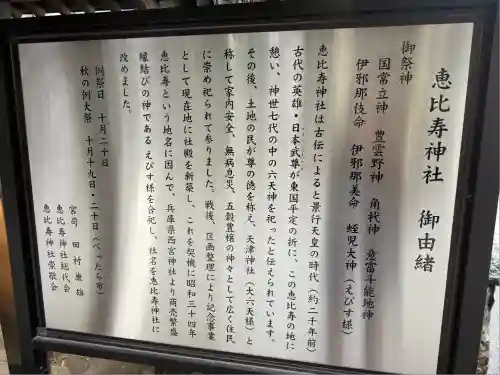 恵比寿神社 御由緒
御祭神
国常立神 豊雲野神 角杙神 意富斗能地神
伊邪那岐命 伊邪那美命 蛭児大神(えびす様)
恵比寿神社は古伝によると景行天皇の時代(約二千年前)
古代の英雄・日本武尊が東国平定の折に、この恵比寿の地に
憩い、神世七代の中の六天神を祀ったと伝えられています。
その後、土地の民が尊の徳を称え、天津神社(大六天様)と
称して家内安全、無病息災、五穀豊穣の神々として広く住民
に崇め祀られて参りました。戦後、区画整理により記念事業
として現在地に社殿を新築し、これを契機に昭和三十四年
恵比寿という地名に因んで、兵庫県西宮神社より商売繁盛
縁結びの神である えびす様を合祀し、社名を恵比寿神社に
改めました。
例祭日 十月二十日
秋の例大祭 十月十九日・二十日(べったら市)
宮司 田村 雄
恵比寿神社総代会
恵比寿神社崇敬会